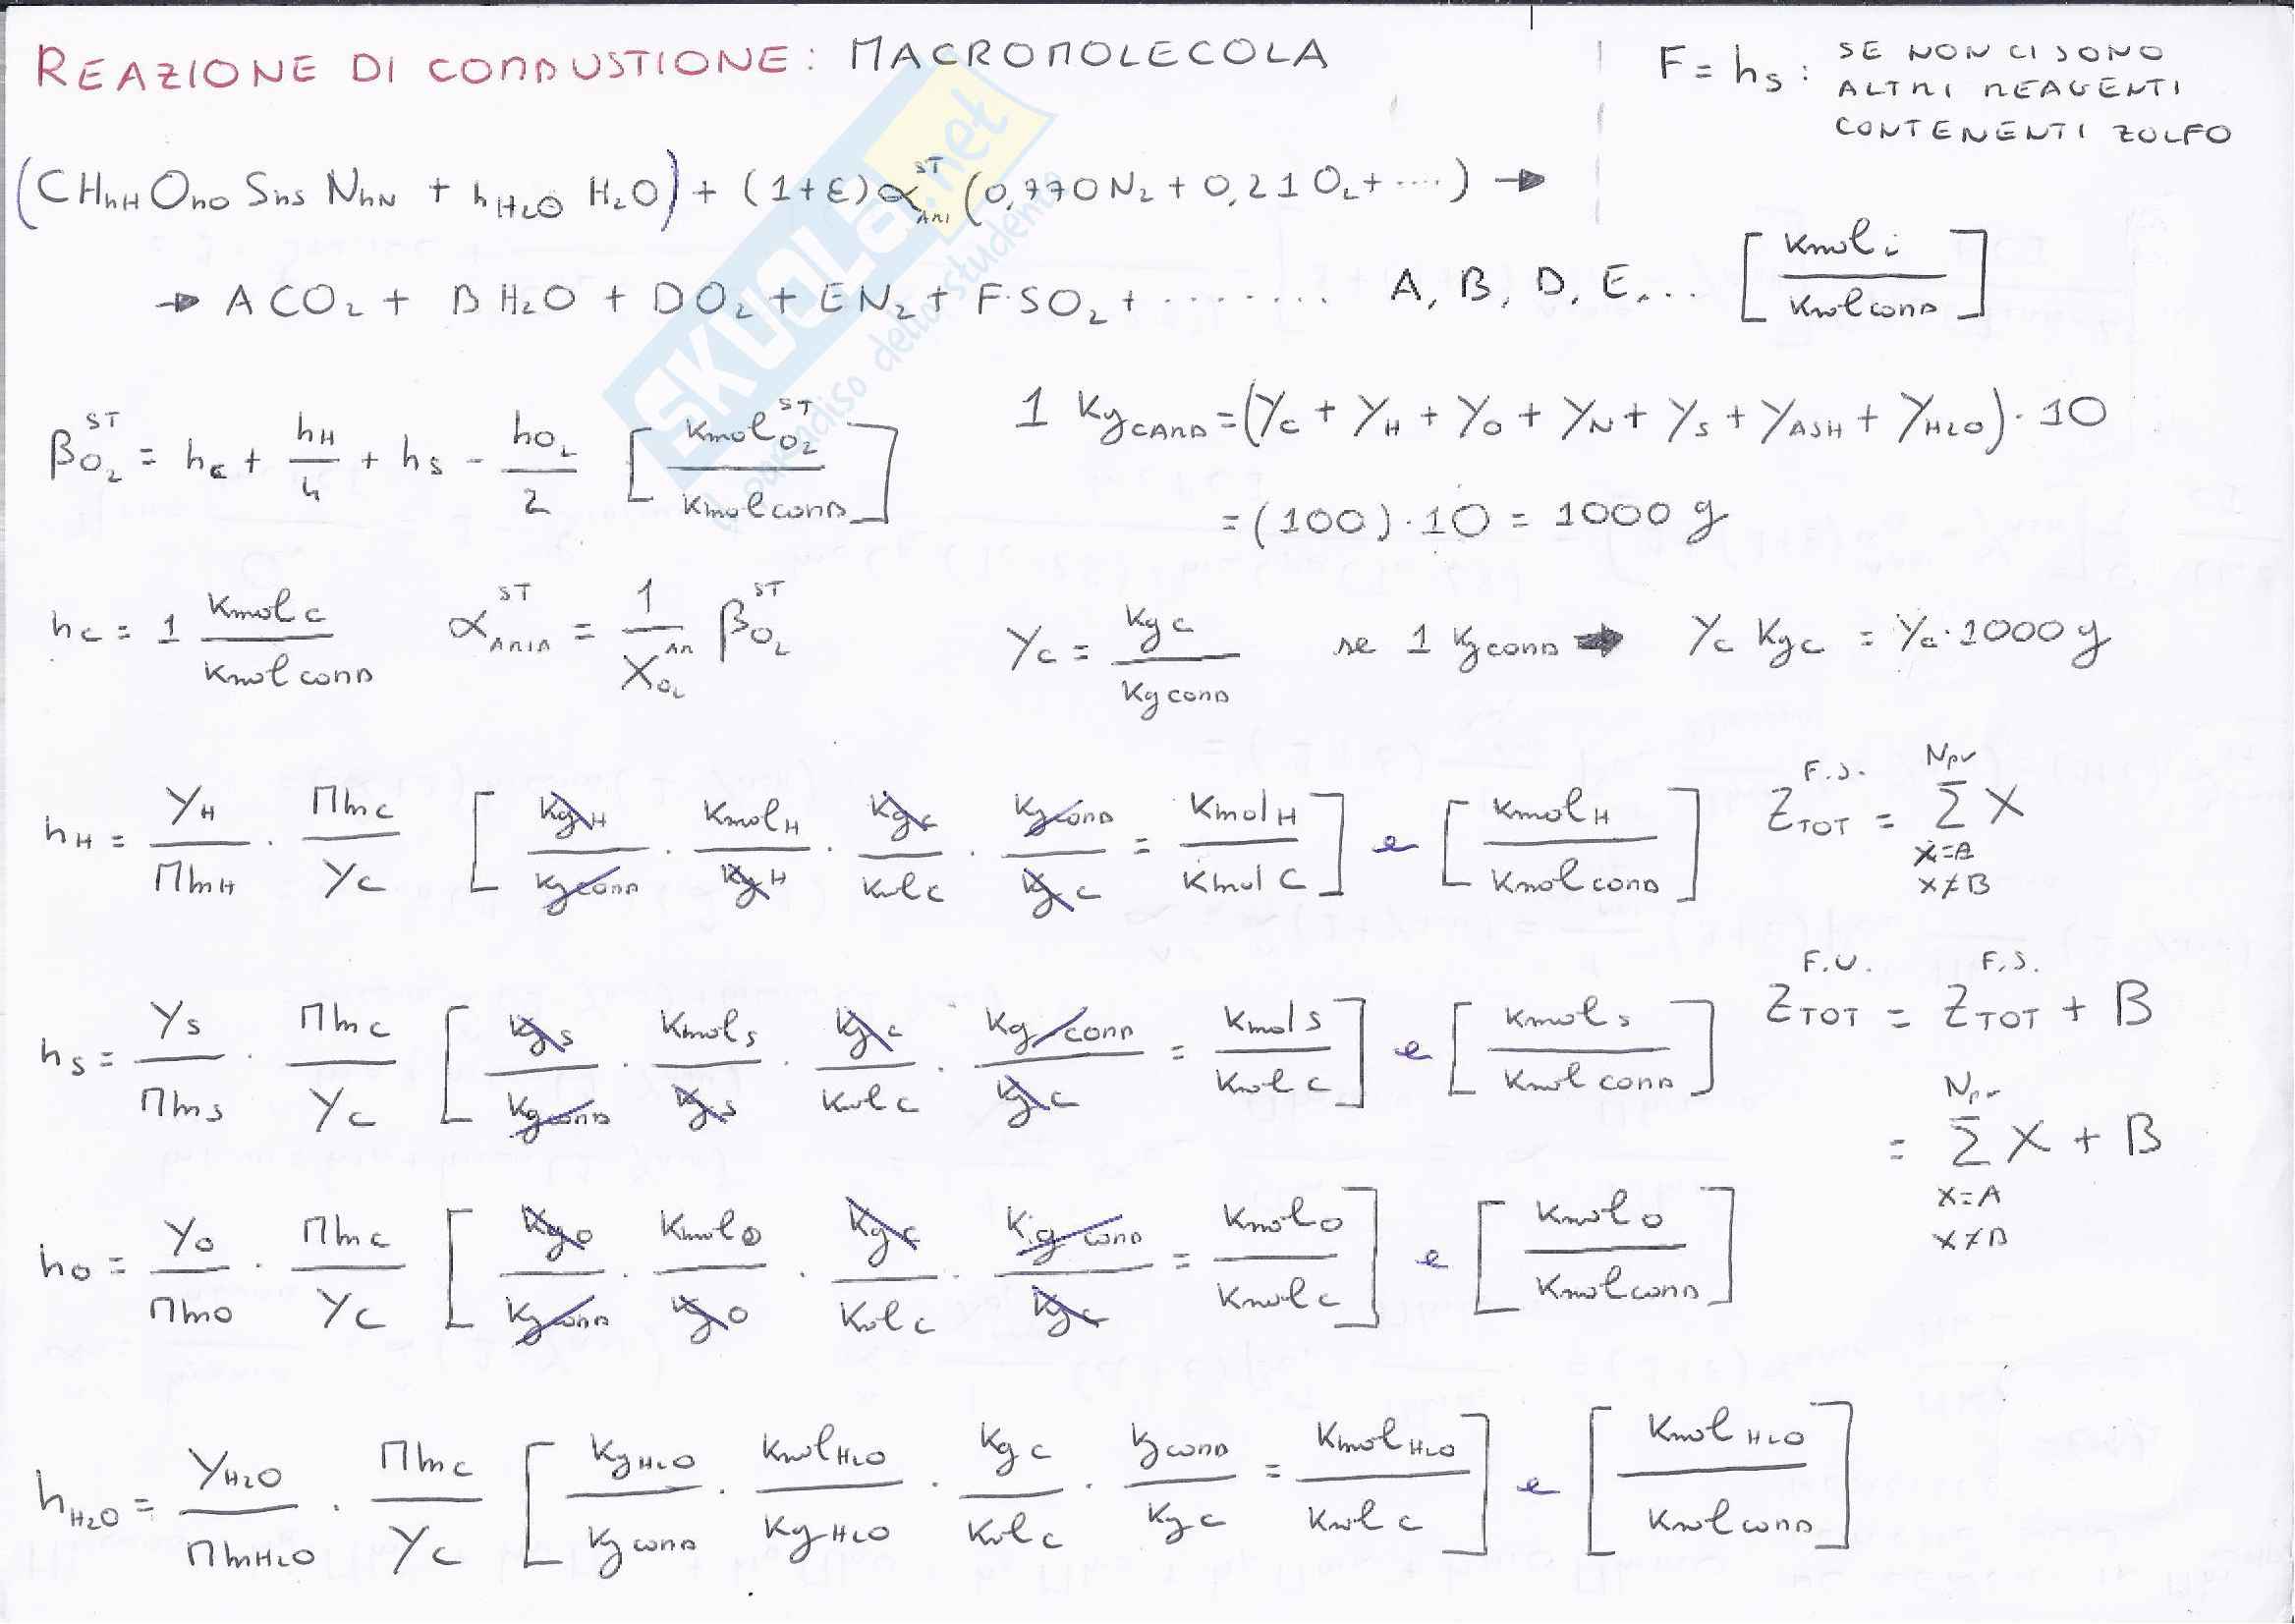 REAZIONE DI COMBUSTIONE: MACROMOLECOLA
F = hS : SE NON CI SONO
ALTRI REAGENTI
CONTENENTI ZOLFO
(CHhH OhO ShS NhN + hH2O H2O) + (1+ε) α^ST_ARI (0,770 N2 + 0,21 O2 + ....) →
→ A CO2 + B H2O + D O2 + E N2 + F·SO2 + ........ A, B, D, E, ... [Kmol i / Kmol COMB]
β^ST_O2 = hC + hH/4 + hS - hO2/2 [Kmol^ST_O2 / Kmol COMB]
1 Kg CARB = (YC + YH + YO + YN + YS + YASH + YH2O) · 10
= (100) · 10 = 1000 g
hC = 1 Kmol C / Kmol COMB α^ST_ARIA = 1/X^AR_O2 β^ST_O2
YC = Kg C / Kg COMB se 1 Kg COMB → YC Kg C = YC · 1000 g
hH = YH/MmH · MmC/YC [Kg H/Kg COMB · Kmol H/Kg H · Kg C/Kmol C · Kg COMB/Kg C = Kmol H/Kmol C] e [Kmol H/Kmol COMB]
Z^F.S._TOT = Σ^Npr_X=A X≠B X
hS = YS/MmS · MmC/YC [Kg S/Kg COMB · Kmol S/Kg S · Kg C/Kmol C · Kg COMB/Kg C = Kmol S/Kmol C] e [Kmol S/Kmol COMB]
Z^F.U._TOT = Z^F.S._TOT + B
= Σ^Npr_X=A X≠B X + B
hO = YO/MmO · MmC/YC [Kg O/Kg COMB · Kmol O/Kg O · Kg C/Kmol C · Kg COMB/Kg C = Kmol O/Kmol C] e [Kmol O/Kmol COMB]
hH2O = YH2O/MmH2O · MmC/YC [Kg H2O/Kg COMB · Kmol H2O/Kg H2O · Kg C/Kmol C · Kg COMB/Kg C = Kmol H2O/Kmol C] e [Kmol H2O/Kmol COMB]
SKUOLA.net
il paradiso dello studente